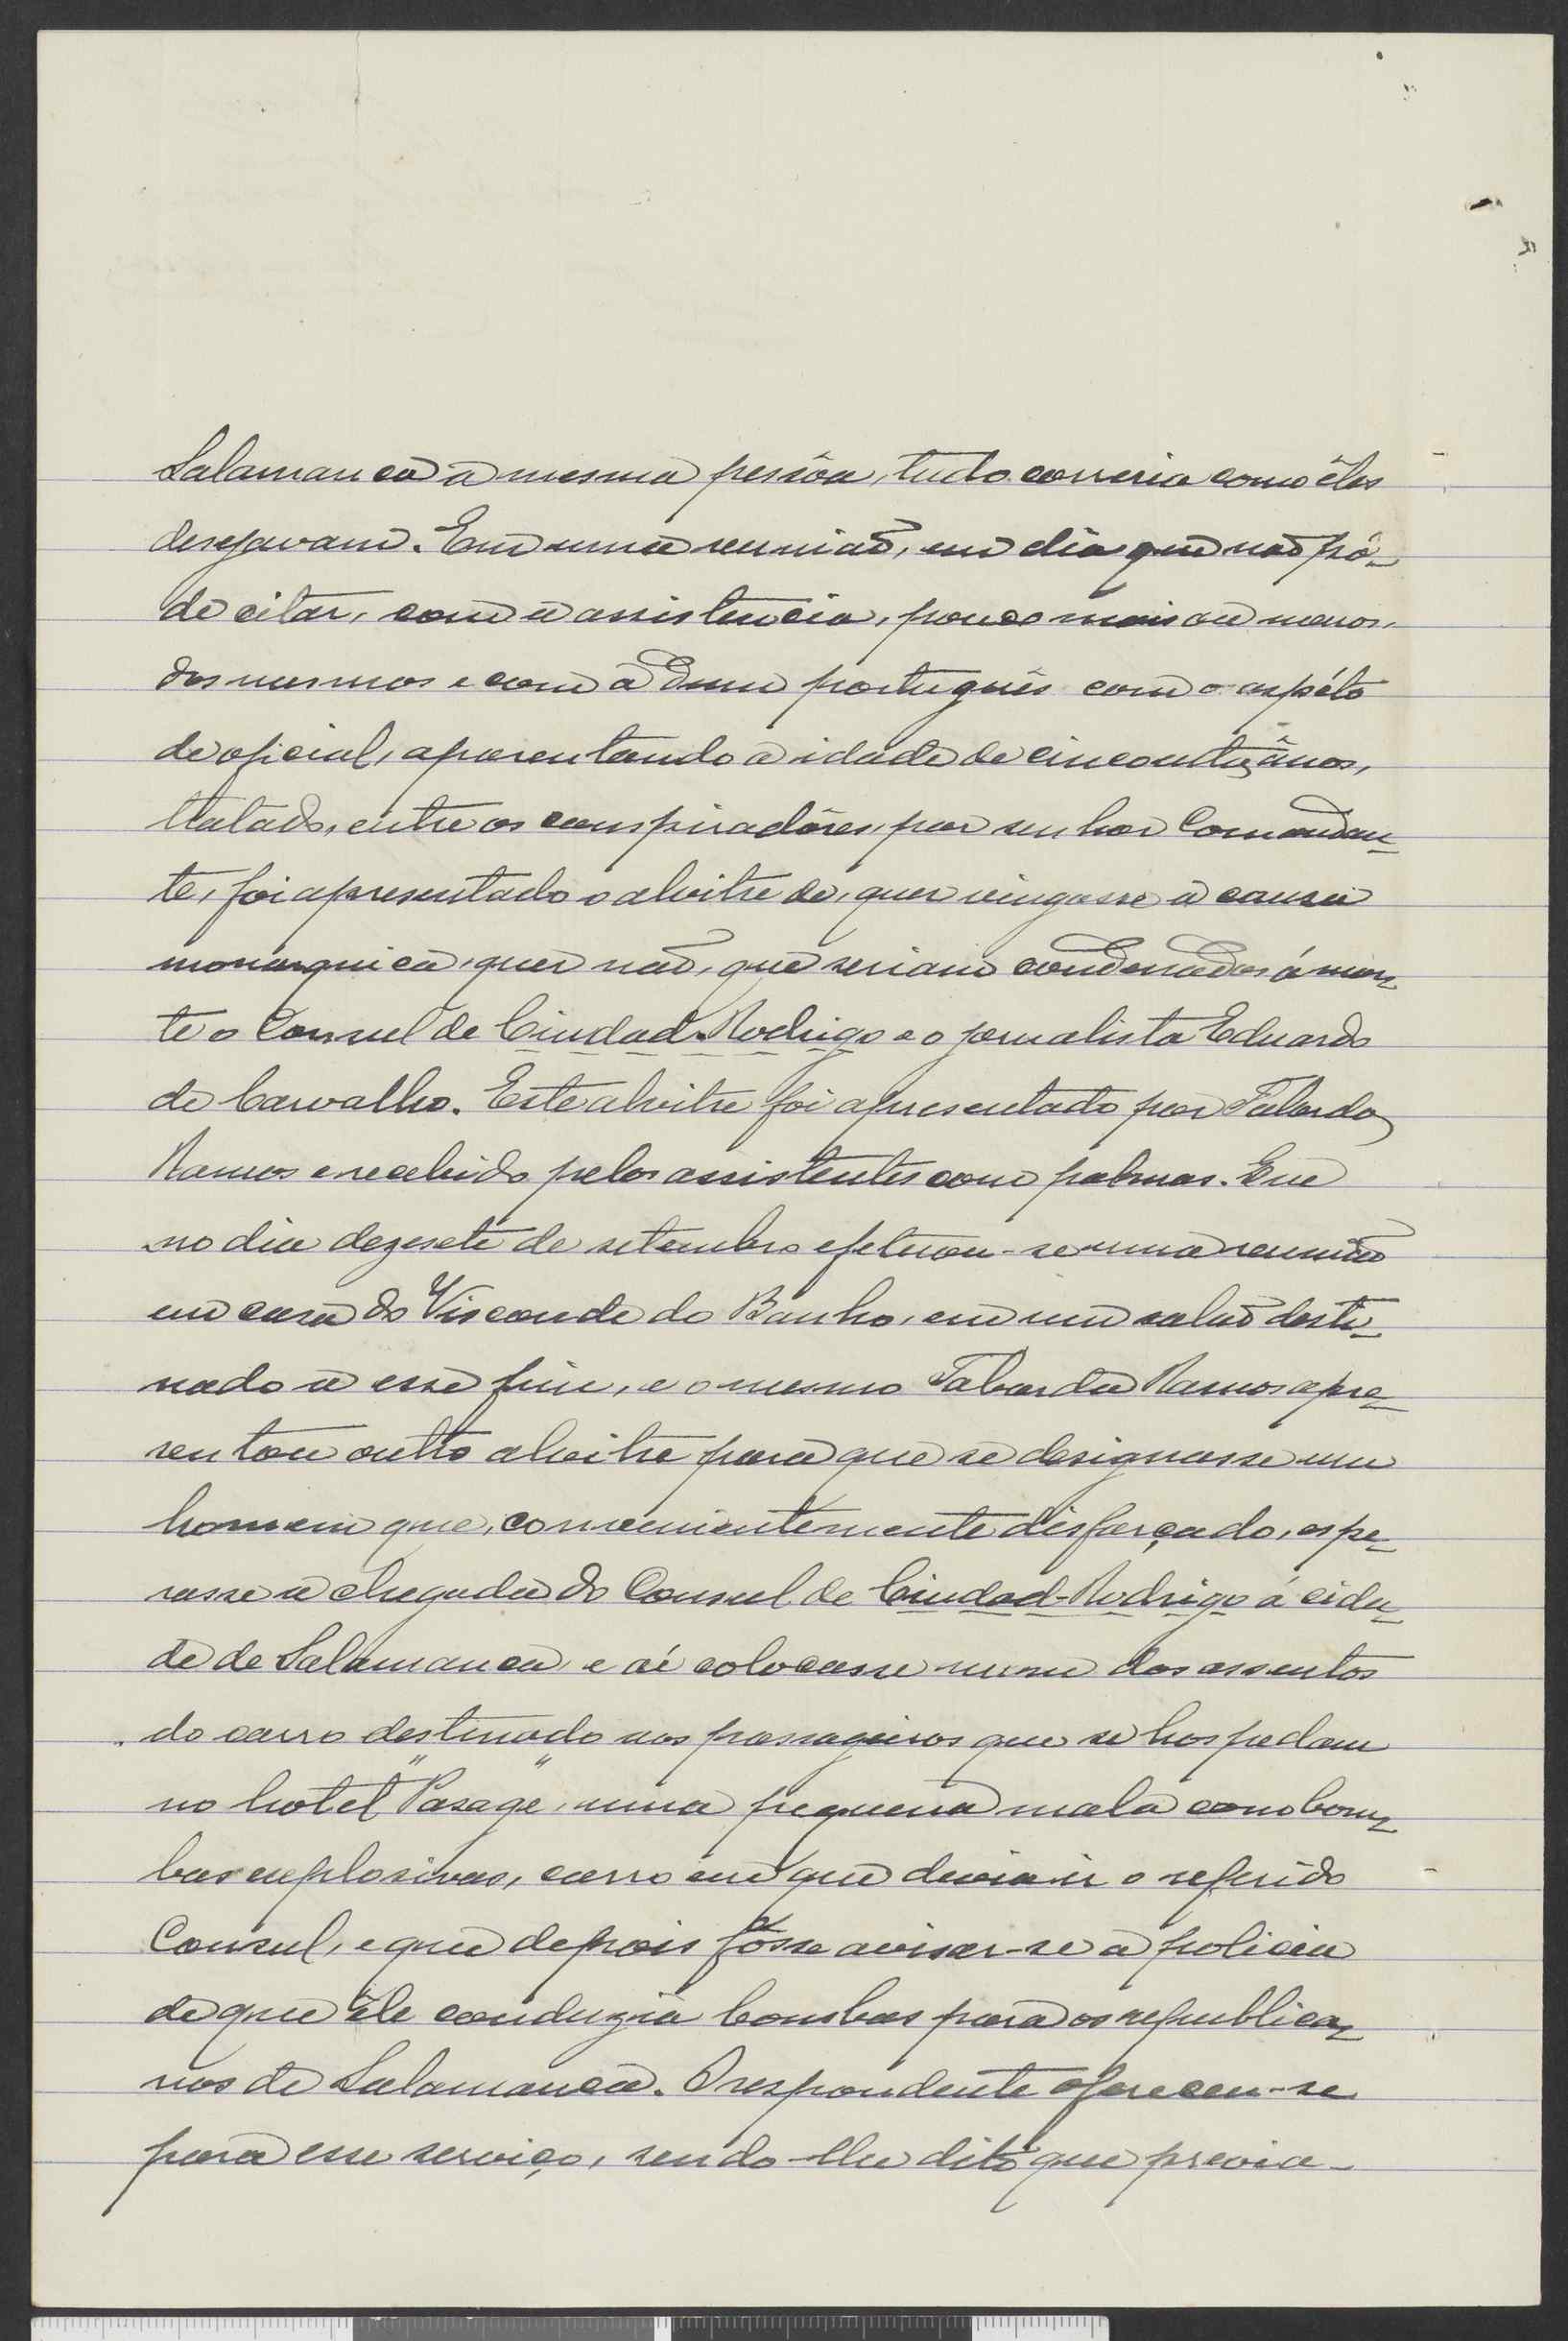 Salamanca a mesma pessôa, tudo correria como êles
desejavam. Em uma reunião, em dia que não pó-
de citar, com a assistencia, pouco mais ou menos,
dos mesmos e com a dum português com o aspéto
de oficial, aparentando a idade de cincoenta ânos,
tratado, entre os conspiradôres, por senhor Comandan-
te, foi apresentado o alvitre de, quer vingasse a causa
monarquica, quer não, que seriam condenados á mor-
te o Consul de Ciudad-Rodrigo e o jornalista Eduardo
de Carvalho. Este alvitre foi apresentado por Taborda
Ramos e recebido pelos assistentes com palmas. Que
no dia dezesete de setembro efetuou-se uma reunião
em casa do Visconde do Banho, em um salão desti-
nado a esse fim, e o mesmo Taborda Ramos apre-
sentou outro alvitre para que se designasse um
homem que, convenientemente disfarçado, espe-
rasse a chegada do Consul de Ciudad-Rodrigo á cida-
de de Salamanca e aí colocasse num dos assentos
do carro destinado aos passageiros que se hospedam
no hotel "Pasage", uma pequena mala com bom-
bas explosivas, carro em que devia ir o referido
Consul, e que depois fôsse avisar-se a policia
de que êle conduzia bombas para os republica-
nos de Salamanca. O respondente ofereceu-se
para esse serviço, sendo-lhe dito que previa-